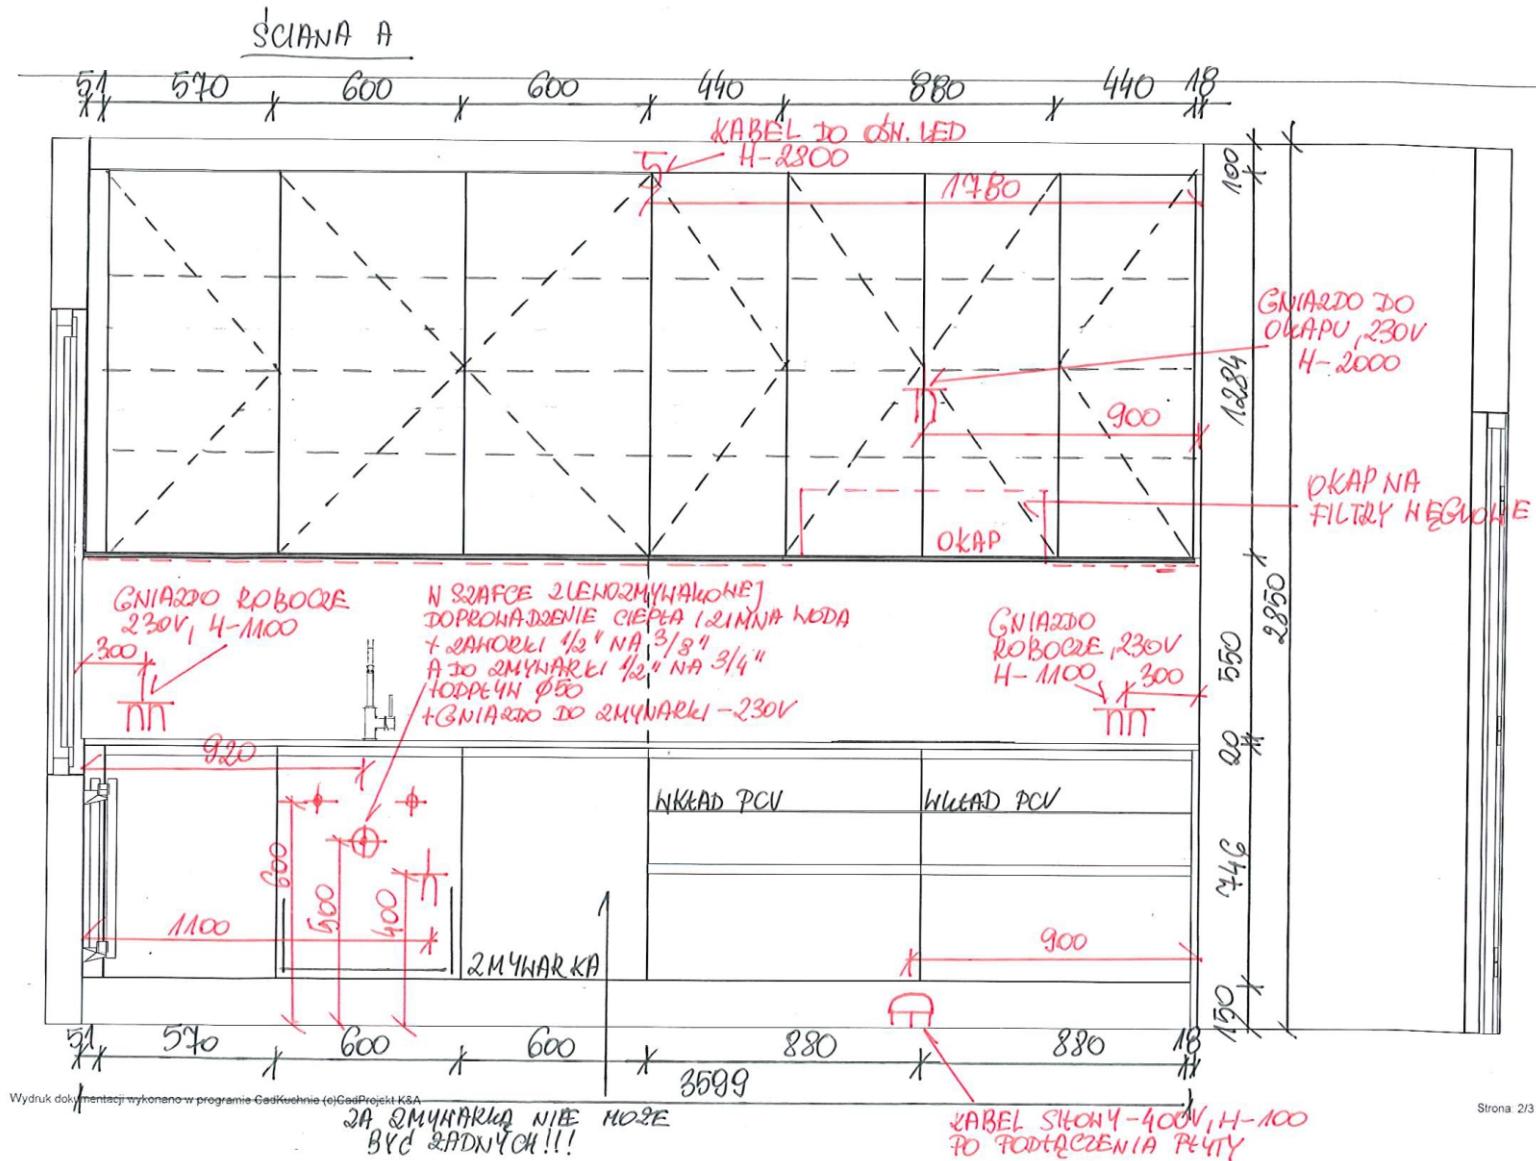 ŚCIANA A
51 570 600 600 440 880 440 18
KABEL DO OŚW. LED
H-2800
1780
100
GNIAZDO DO
OKAPU, 230V
H-2000
1284
900
OKAP NA
FILTRY WĘGLOWE
OKAP
2850
GNIAZDO ROBOCZE
230V, H-1100
300
W SZAFCE ZLEWOZMYWAKOWEJ
DOPROWADZENIE CIEPŁA I ZIMNA WODA
+ ZAWORKI 1/2" NA 3/8"
A DO ZMYWARKI 1/2" NA 3/4"
+ODPŁYW Ø50
+GNIAZDO DO ZMYWARKI -230V
GNIAZDO
ROBOCZE, 230V
H-1100
300
550
20
920
WKŁAD PCV
WKŁAD PCV
600
500
400
746
1100
900
ZMYWARKA
150
51 570 600 600 880 880 18
3599
Wydruk dokumentacji wykonano w programie CadKuchnie (c)CadProjekt K&A
Strona: 2/3
ZA ZMYWARKĄ NIE MOŻE
BYĆ ŻADNYCH!!!
KABEL SIŁOWY-400V, H-100
PO PODŁĄCZENIA PŁYTY